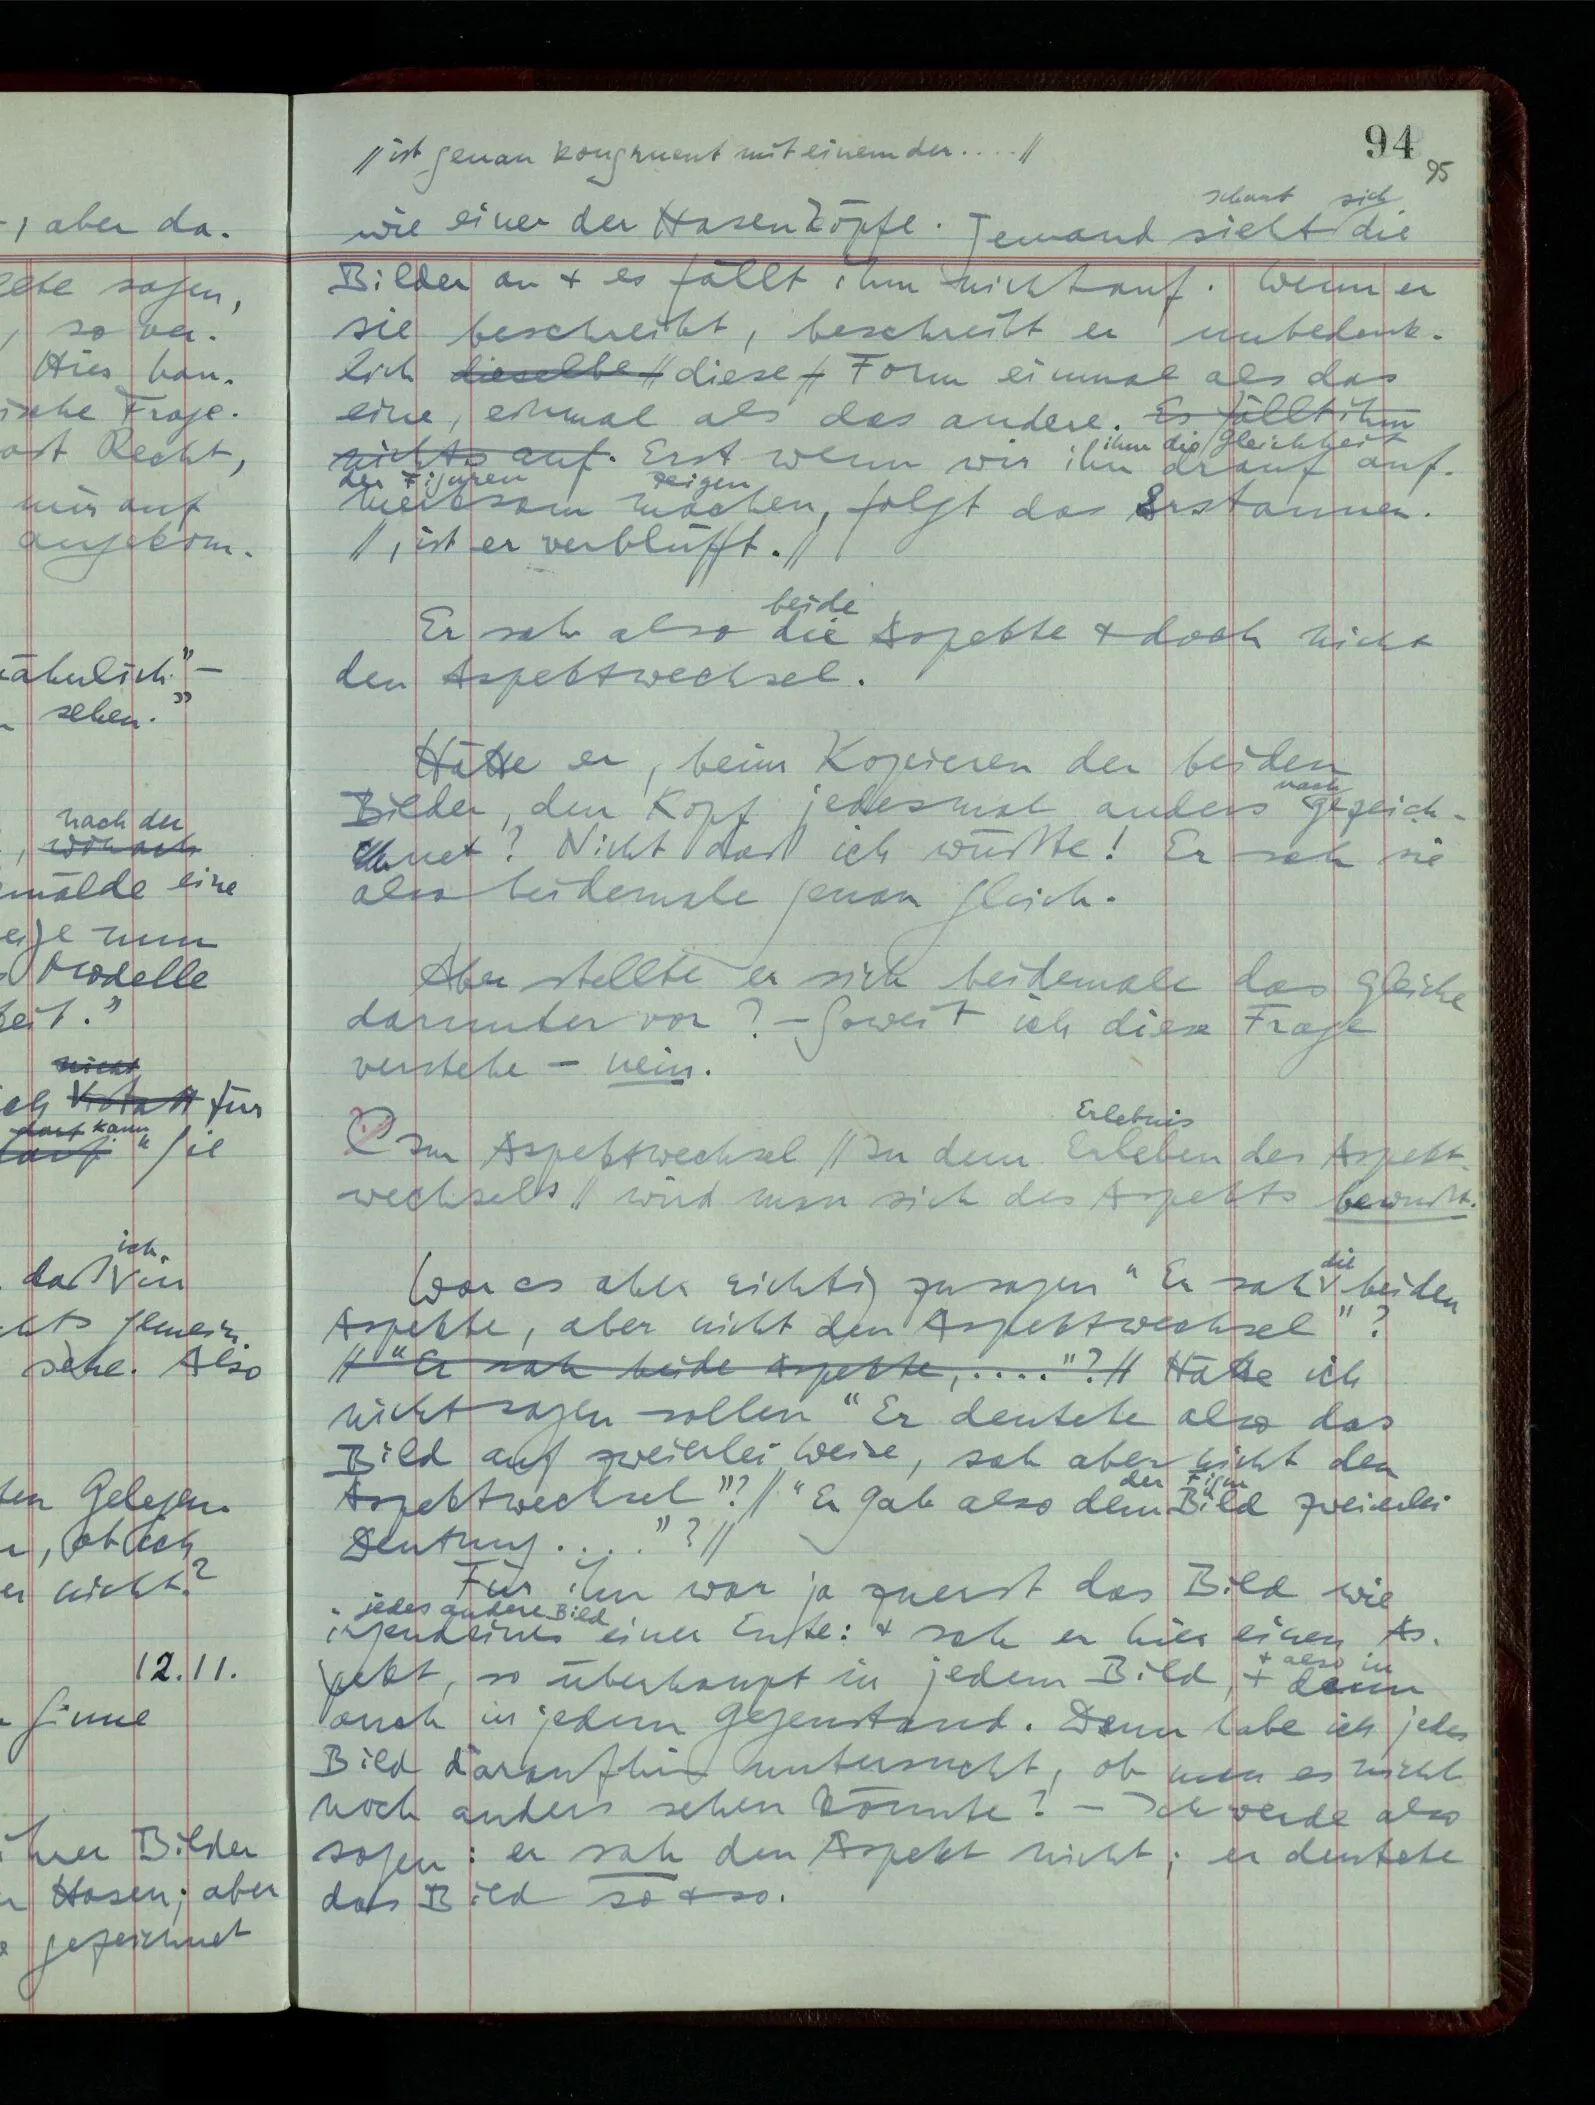 -, aber da.
sagen,
, so ver.
Hier han.
ische Frage.
Recht,
mir auf
angekom.
ähnlich." –
sehen."
nach der
, wonach
emälde eine
nun
Modelle
nicht
für
darf kann
" Sie
ich
. daß in
gemein
sehe. Also
ten Gelegen.
, ob ich
er nicht?
12.11.
Sinne
ihrer Bilder
Hasen; aber
gezeichnet
94
95
// ist genau kongruent mit einem der . . . . //
schaut sich
wie einer der Hasenköpfe. Jemand sieht die
Bilder an + es fällt ihm nicht auf. Wenn er
sie beschreibt, beschreibt er unbedenk-
lich dieselbe // diese // Form einmal als das
eine, einmal als das andere. Es fällt ihm
nichts auf. Erst wenn wir ihn drauf auf-
ihm die Gleichheit
der Figuren zeigen
merksam machen, folgt das Erstaunen.
// , ist er verblüfft. //
beide
Er sah also die Aspekte + doch nicht
den Aspektwechsel.
Hätte er, beim Kopieren der beiden
nach
Bilder, den Kopf jedesmal anders gezeich-
net? Nicht daß ich wüßte! Er sah sie
also beidemale genau gleich.
Aber stellte er sich beidemale das Gleiche
darunter vor? – Soweit ich diese Frage
verstehe – nein.
Erlebnis
Im Aspektwechsel // In dem Erleben des Aspekt-
wechsels // wird man sich des Aspekts bewußt.
die
War es aber richtig zu sagen "Er sah beiden
Aspekte, aber nicht den Aspektwechsel"?
// "Er sah beide Aspekte, . . . ."? // Hätte ich
nicht sagen sollen "Er deutete also das
Bild auf zweierlei Weise, sah aber nicht den
der Figur
Aspektwechsel"? // "Er gab also dem Bild zweierlei
Deutung . . . . "? //
Für ihn war ja zuerst das Bild wie
jedes andere Bild
irgendeines einer Ente: + sah er hier einen As-
+ also in
pekt, so überhaupt in jedem Bild, + dann
auch in jedem Gegenstand. Denn habe ich jedes
Bild daraufhin untersucht, ob man es nicht
noch anders sehen könnte? – Ich werde also
sagen: er sah den Aspekt nicht; er deutete
das Bild so + so.